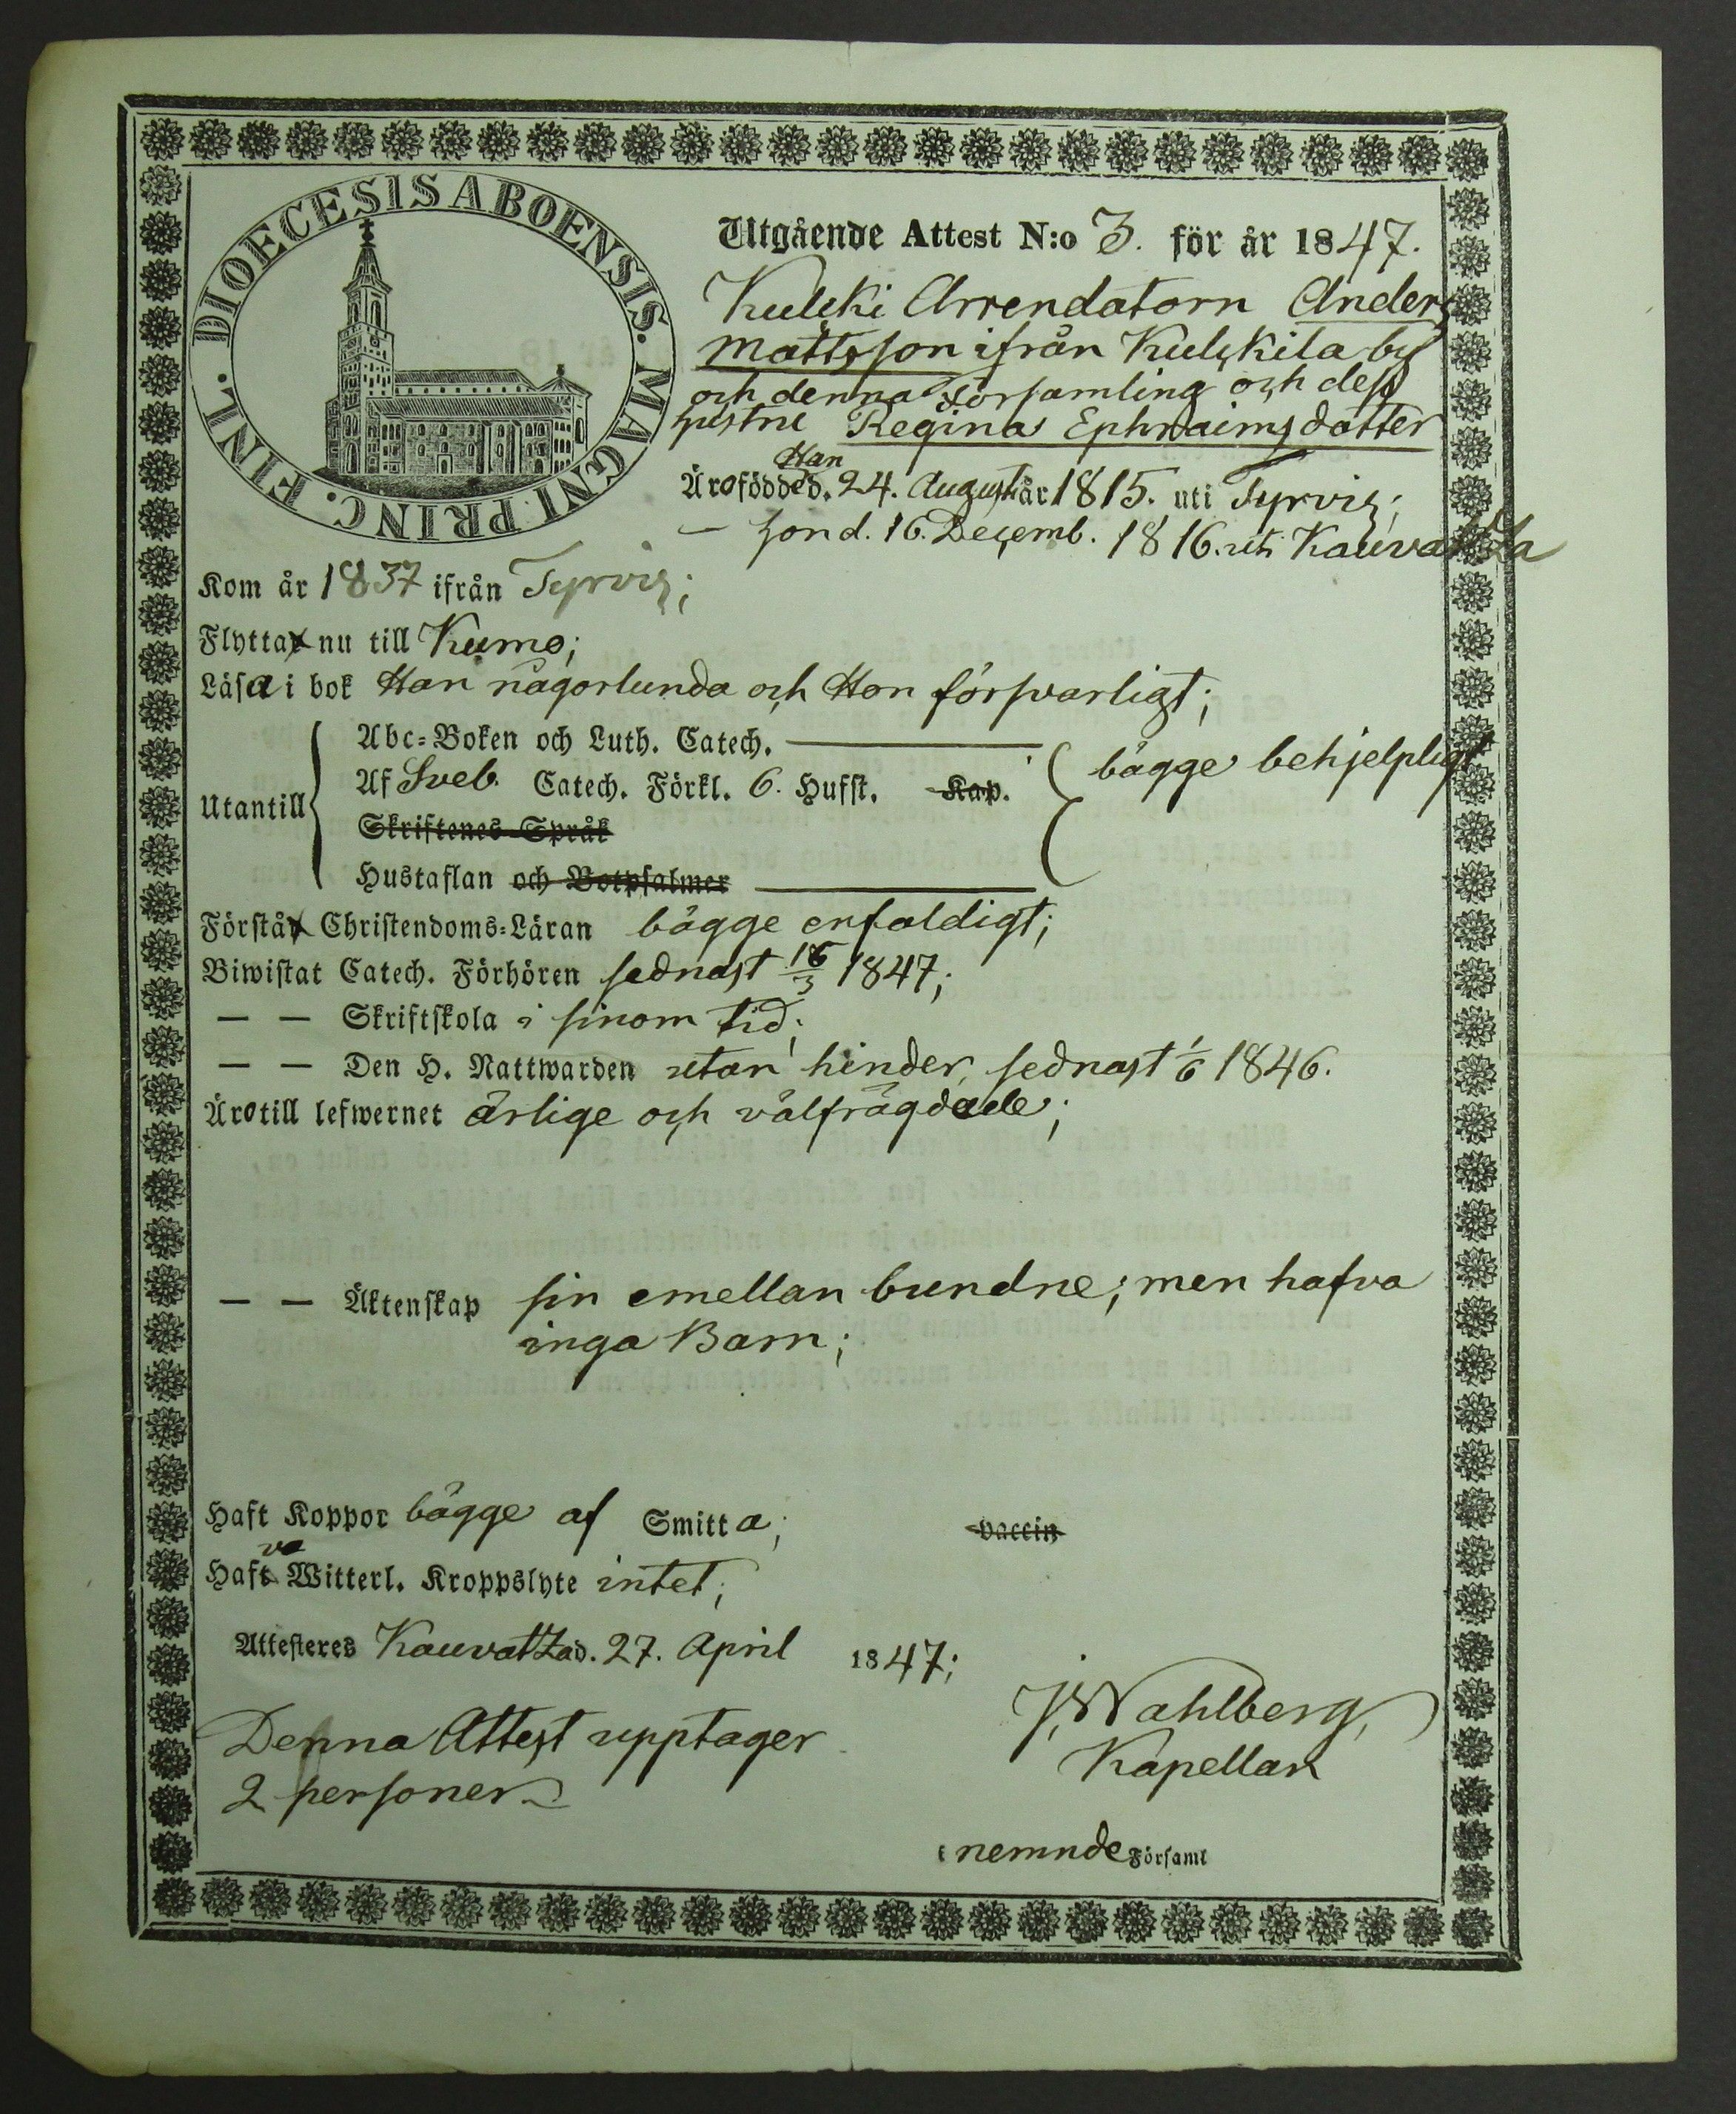 DIOECESIS ABOENSIS. MAGNI PRINC. FINL.
Utgående Attest N:o 3. för år 1847.
Kulcki Arrendatorn Anders
Mattsson ifrån Kulckila by
och denna Församling och dess
hustru Regina Ephraimsdotter
Han
Äro födde d. 24. Augusti år 1815. uti Tyrvis;
— Hon d. 16. Decemb. 1816. uti Kauvatza
Kom år 1837 ifrån Tyrvis;
Flytta nu till Kumo;
Läsa i bok Han någorlunda och Hon försvarligt;
Utantill
Abc-Boken och Luth. Catech.
Af Sveb. Catech. Förkl. 6. Hufst. Kap.
bägge behjelpligt
Skriftenes Språk
Hustaflan och Botpsalmer
Förstå Christendoms-Läran bägge enfaldigt;
Biwistat Catech. Förhören sednast 16/3 1847;
— — Skriftskola i sinom tid;
— — Den H. Nattwarden utan hinder, sednast 1/6 1846.
Äro till lefwernet ärlige och välfrägdade;
— — Äktenskap sin emellan bundne; men hafva
inga Barn;
Haft Koppor bägge af Smitta; vaccin
va
Haft Witterl. Kroppslyte intet;
Attesteres Kauvatza d. 27. April 1847;
J. Wahlberg,
Kapellan
Denna Attest upptager
2 personer
nemnde Församl